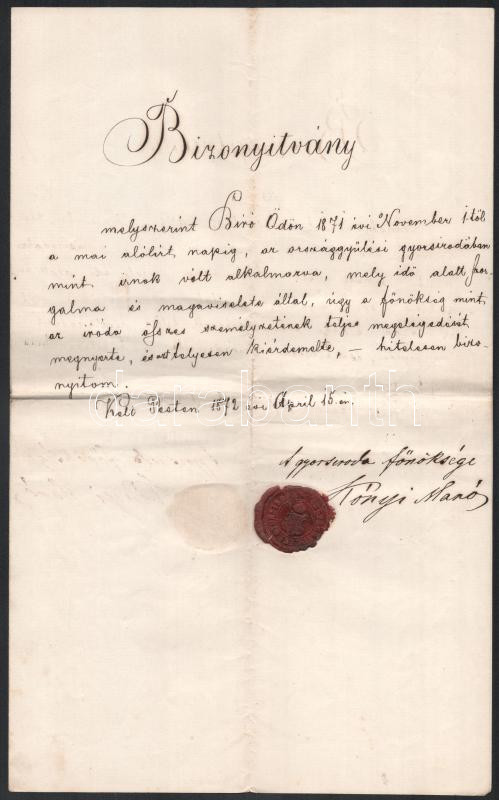 Bizonyitvány
melyszerint Biró Ödön 1871 évi November 1-től
a mai alólirt napig, az országgyűlési gyorsirodában
mint irnok volt alkalmazva, mely idő alatt szor-
galma és magaviselete által, úgy a főnökség mint
az iroda összes személyzetének teljes megelégedését
megnyerte, és azt helyesen kiérdemelte, – hitelesen bizo-
nyitom.
Kelt Pesten 1872 évi April 15-én.
A gyorsiroda főnöksége
Kónyi Manó
darabanth